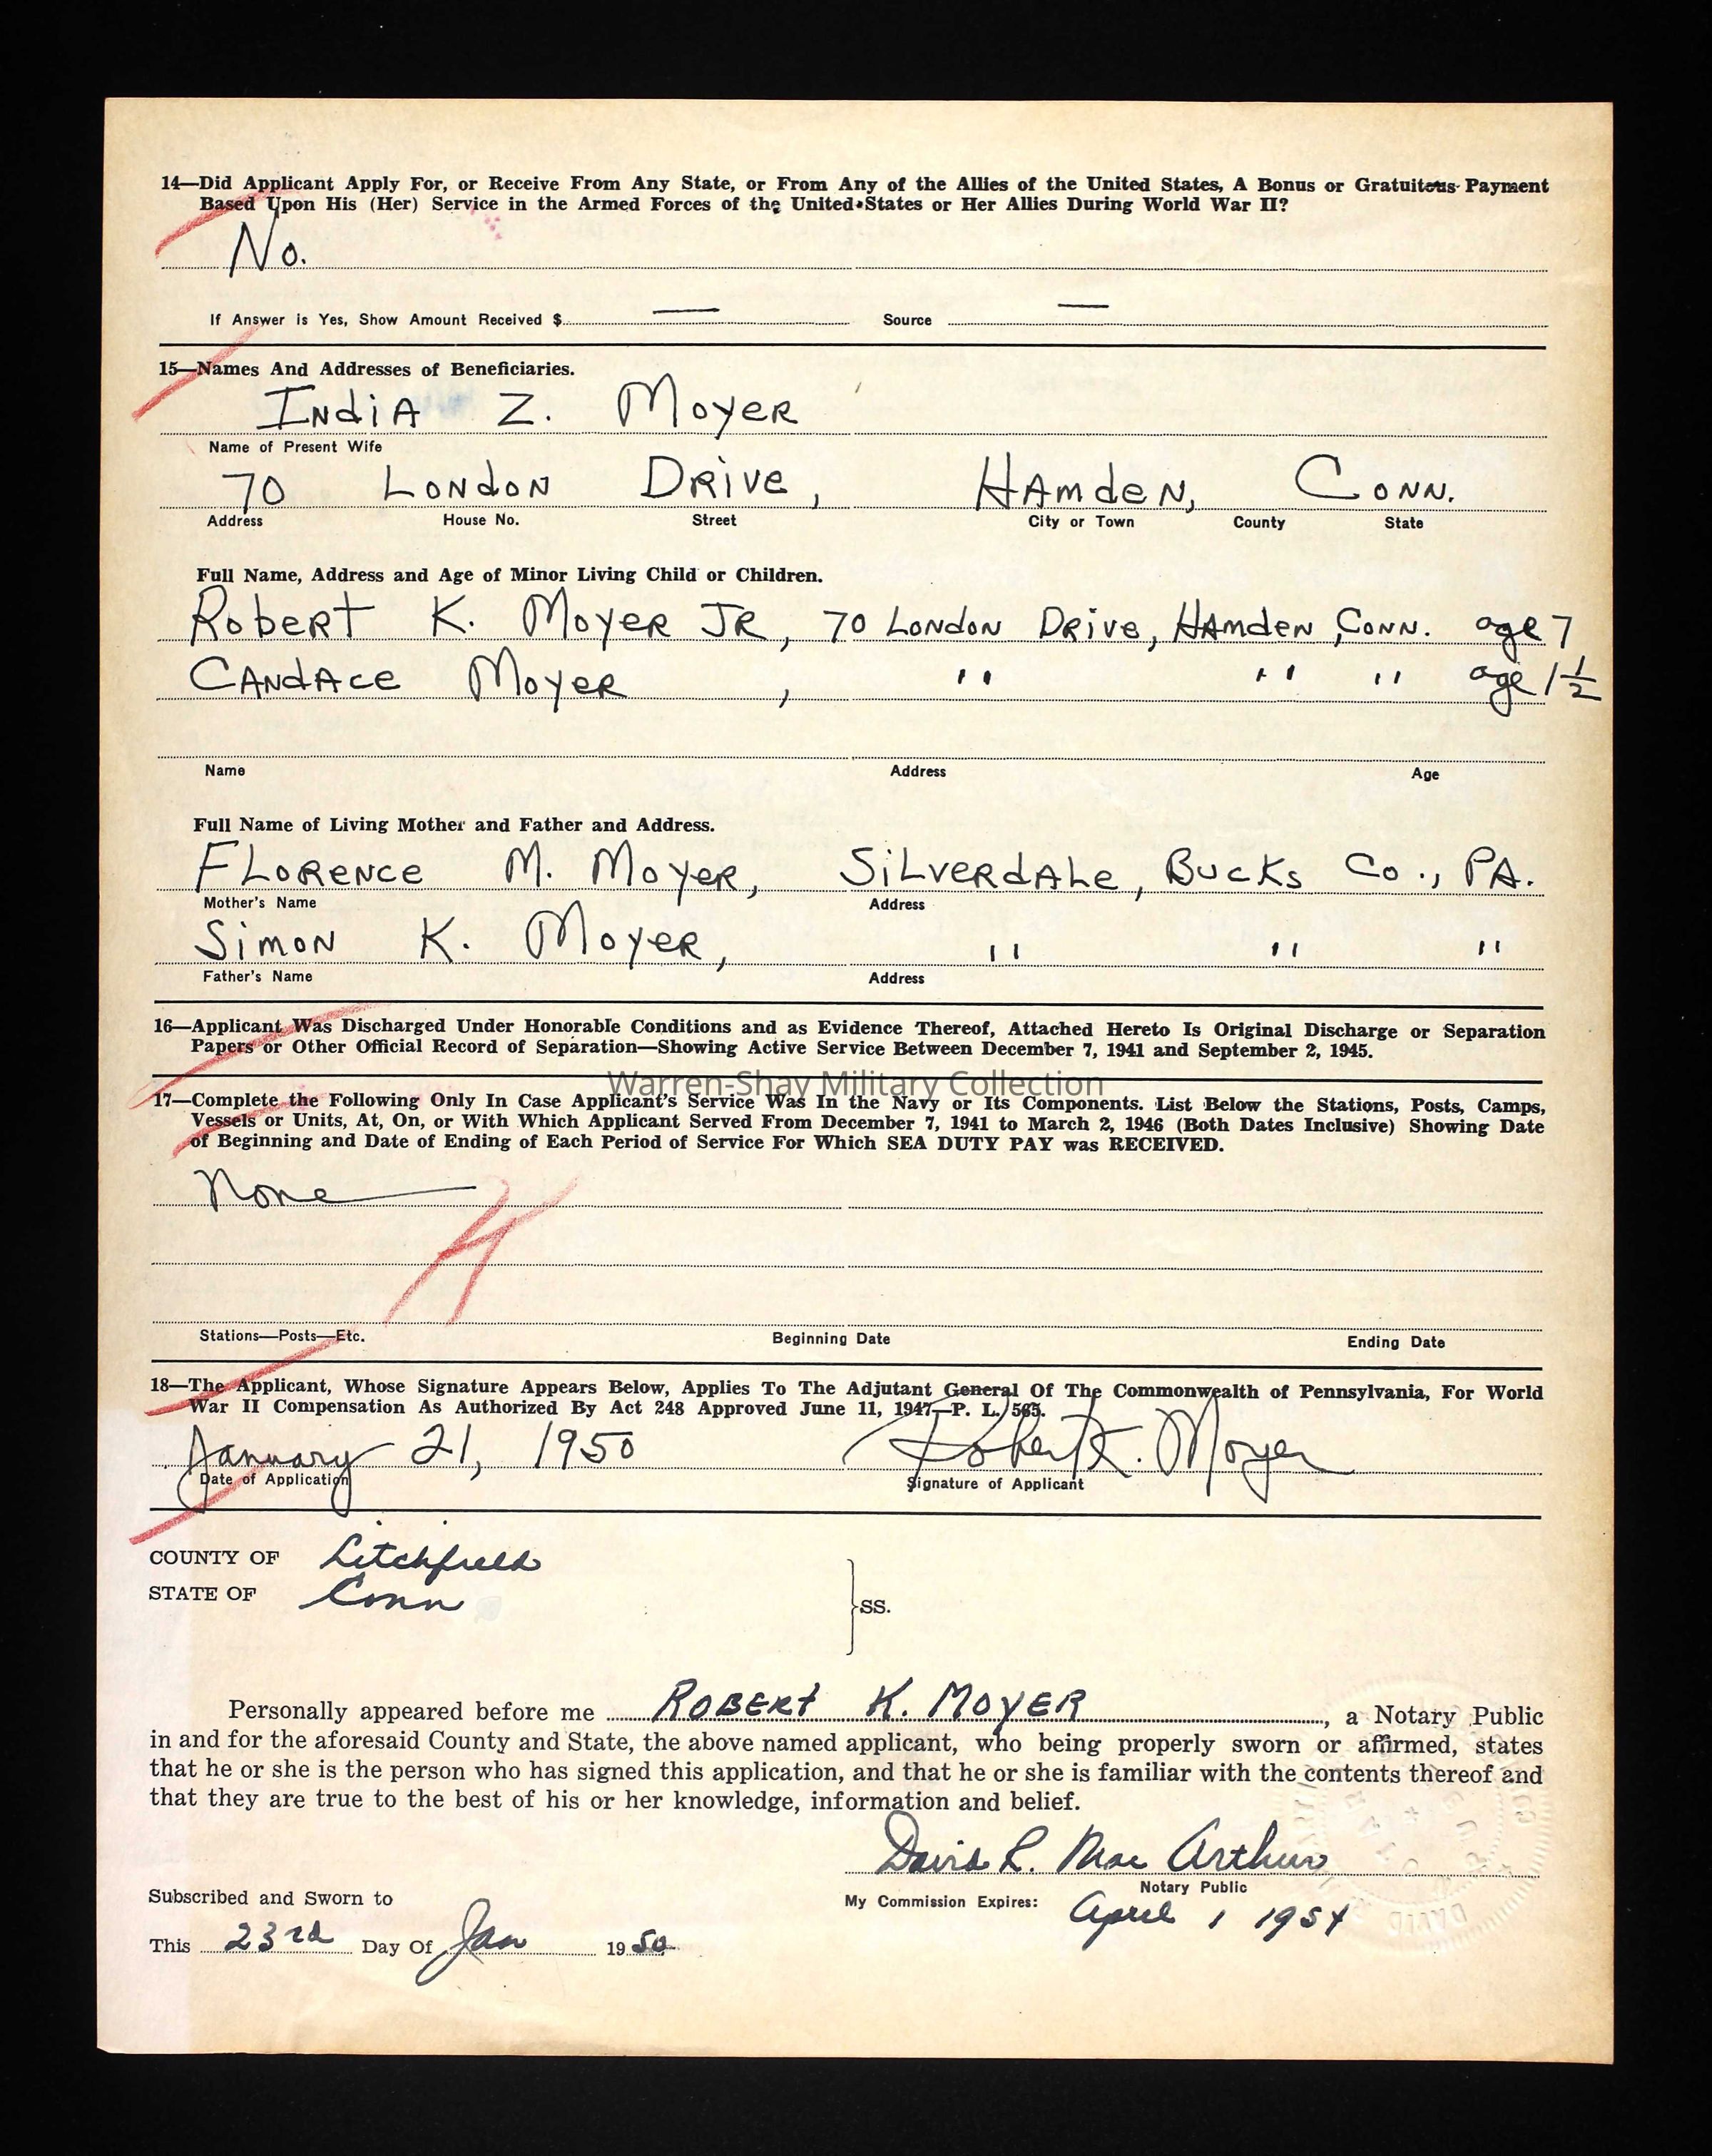 14—Did Applicant Apply For, or Receive From Any State, or From Any of the Allies of the United States, A Bonus or Gratuitous Payment
Based Upon His (Her) Service in the Armed Forces of the United States or Her Allies During World War II?
No.
If Answer is Yes, Show Amount Received $ — Source —
15—Names And Addresses of Beneficiaries.
India Z. Moyer
Name of Present Wife
70 London Drive, Hamden, Conn.
Address House No. Street City or Town County State
Full Name, Address and Age of Minor Living Child or Children.
Robert K. Moyer Jr, 70 London Drive, Hamden, Conn. age 7
Candace Moyer, " " " age 1 1/2
Name Address Age
Full Name of Living Mother and Father and Address.
Florence M. Moyer, Silverdale, Bucks Co., PA.
Mother's Name Address
Simon K. Moyer, " " "
Father's Name Address
16—Applicant Was Discharged Under Honorable Conditions and as Evidence Thereof, Attached Hereto Is Original Discharge or Separation
Papers or Other Official Record of Separation—Showing Active Service Between December 7, 1941 and September 2, 1945.
Warren-Shay Military Collection
17—Complete the Following Only In Case Applicant's Service Was In the Navy or Its Components. List Below the Stations, Posts, Camps,
Vessels or Units, At, On, or With Which Applicant Served From December 7, 1941 to March 2, 1946 (Both Dates Inclusive) Showing Date
of Beginning and Date of Ending of Each Period of Service For Which SEA DUTY PAY was RECEIVED.
None
Stations—Posts—Etc. Beginning Date Ending Date
18—The Applicant, Whose Signature Appears Below, Applies To The Adjutant General Of The Commonwealth of Pennsylvania, For World
War II Compensation As Authorized By Act 248 Approved June 11, 1947—P. L. 565.
January 21, 1950 Robert K. Moyer
Date of Application Signature of Applicant
COUNTY OF Litchfield
STATE OF Conn
SS.
Personally appeared before me ROBERT K. MOYER, a Notary Public
in and for the aforesaid County and State, the above named applicant, who being properly sworn or affirmed, states
that he or she is the person who has signed this application, and that he or she is familiar with the contents thereof and
that they are true to the best of his or her knowledge, information and belief.
David L. MacArthur
Notary Public
Subscribed and Sworn to
My Commission Expires: April 1 1954
This 23rd Day Of Jan 1950